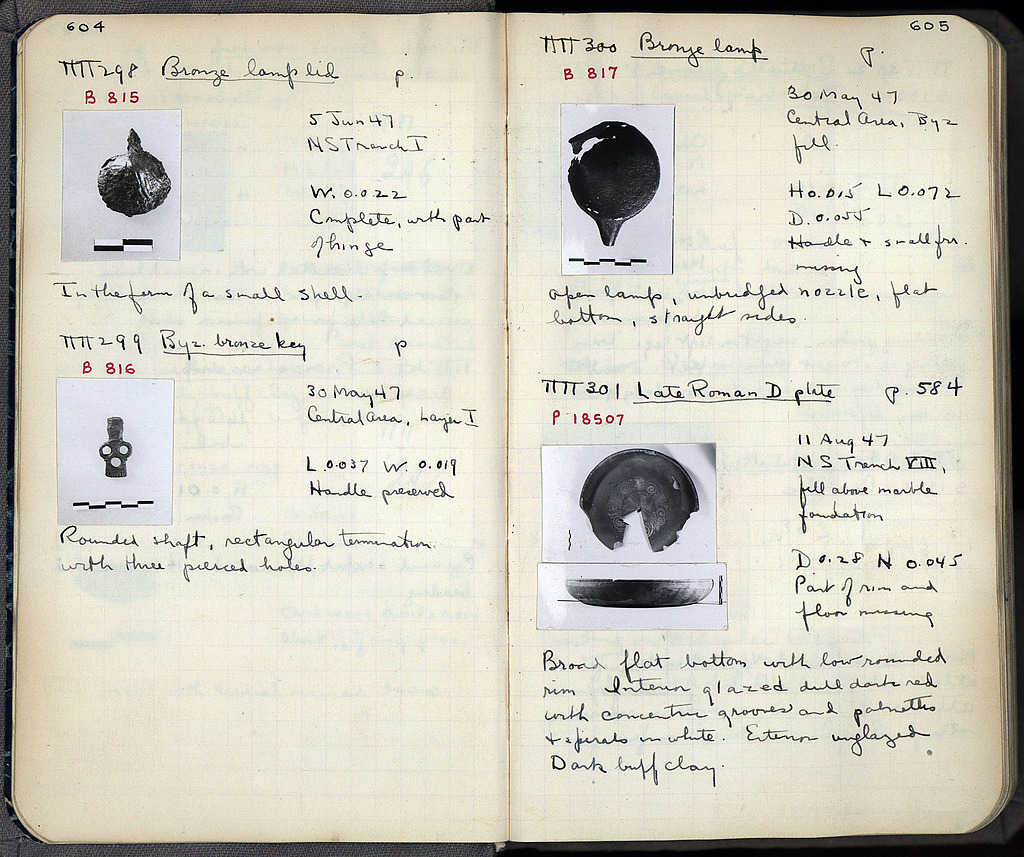 604
ΠΠ 298 Bronze lamp lid p.
B 815
5 Jun 47
NS Trench I
W. 0.022
Complete, with part
of hinge
In the form of a small shell.
ΠΠ 299 Byz. bronze key p
B 816
30 May 47
Central Area, Layer I
L. 0.037 W. 0.019
Handle preserved
Rounded shaft, rectangular termination
with three pierced holes.
605
ΠΠ 300 Bronze lamp p.
B 817
30 May 47
Central Area, Byz
fill.
H 0.015 L 0.072
D. 0.055
Handle + small frr.
missing
open lamp, unbridged nozzle, flat
bottom, straight sides.
ΠΠ 301 Late Roman D plate p. 584
P 18507
11 Aug 47
NS Trench VIII,
fill above marble
foundation
D 0.28 H 0.045
Part of rim and
floor missing
Broad flat bottom with low rounded
rim Interior glazed dull dark red
with concentric grooves and palmettes
+ spirals in white. Exterior unglazed
Dark buff clay.